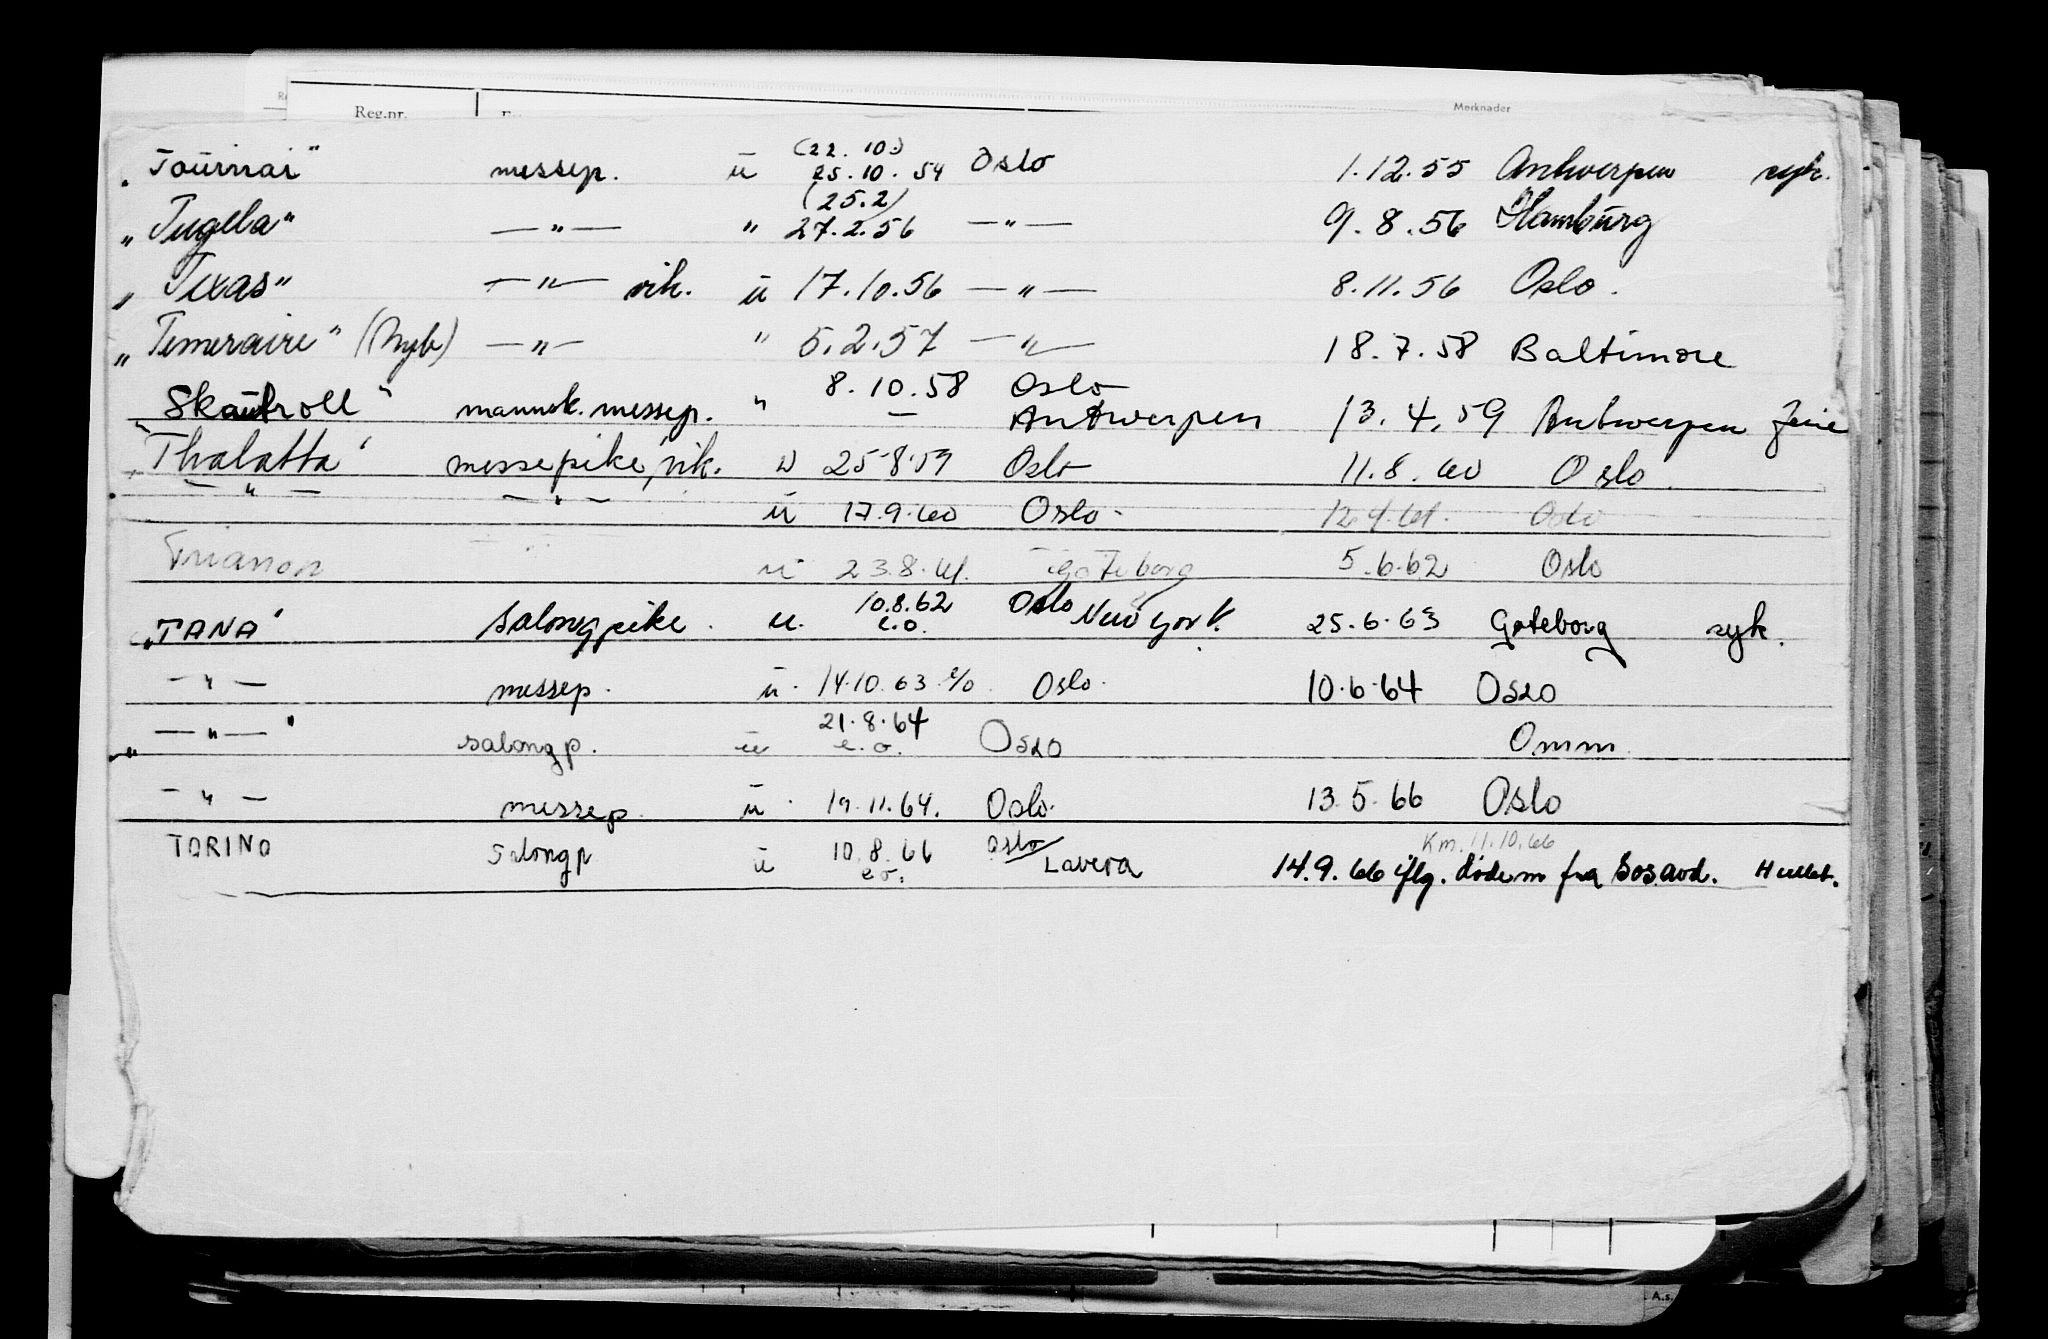 Reg.nr. Merknader
„Tournai" messep. ü (22.10.) 25.10.54 Oslo 1.12.55 Antwerpen syk.
„Tugela" —"— " (25.2) 27.2.56 —"— 9.8.56 Hamburg
„Texas" —"— vik. ü 17.10.56 —"— 8.11.56 Oslo.
„Temeraire" (Nyb) —"— " 5.2.57 —"— 18.7.58 Baltimore
„Skautroll" mannsk. messep. " 8.10.58 Oslo
— Antwerpen 13.4.59 Antwerpen ferie
„Thalatta" messepike, vik. u 25-8-59 Oslo 11.8.60 Oslo.
—"— —"— ü 17.9.60 Oslo. 12.4.61. Oslo
Trianon u 23.8.61. Göteborg 5.6.62 Oslo
„TANA" Salongpike. u. 10.8.62 e.o. Oslo New York. 25.6.63 Gøteborg syk.
—"— messep. ü. 14.10.63 e/o. Oslo. 10.6.64 Oslo
„—"—" salongp. ü 21.8.64 e.o. Oslo Omm.
—"— messep. ü. 19.11.64. Oslo. 13.5.66 Oslo
TORINO Salongp ü 10.8.66 e.o. Oslo/Lavera Km. 11.10.66
14.9.66 iflg. dødsm fra Sos.avd. Hullet.
A.s.